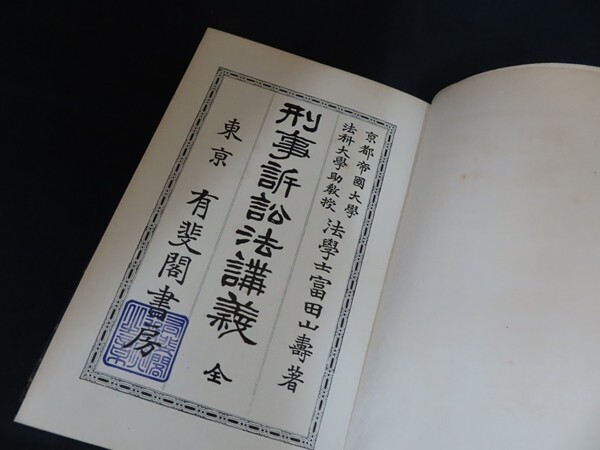 京都帝國大學
法科大學助教授
法學士富田山壽著
刑事訴訟法講義 全
東京 有斐閣書房